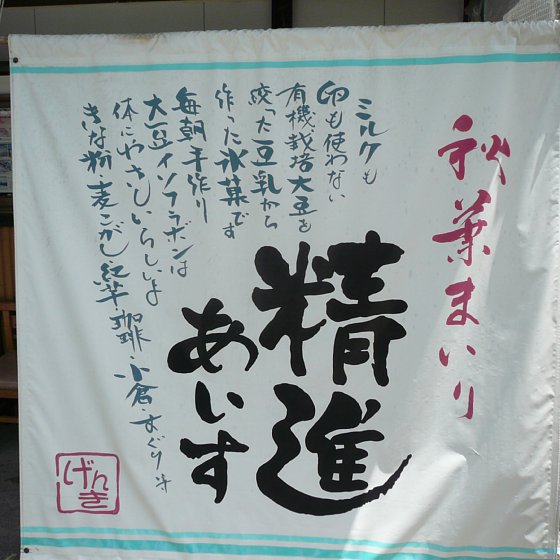 秋葉まいり
精進
あいす
ミルクも
卵も使わない
有機栽培大豆を
絞った豆乳から
作った氷菓です
毎朝手作り
大豆イソフラボンは
体にやさしいらしいよ
きな粉・麦こがし 紅芋 珈琲・小倉・すぐり 等
げんき